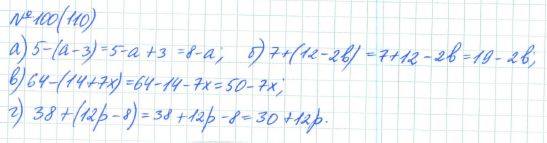 №100(110)
а) 5-(а-3)=5-а+3=8-а; б) 7+(12-2в)=7+12-2в=19-2в;
в) 64-(14+7х)=64-14-7х=50-7х;
г) 38+(12р-8)=38+12р-8=30+12р.